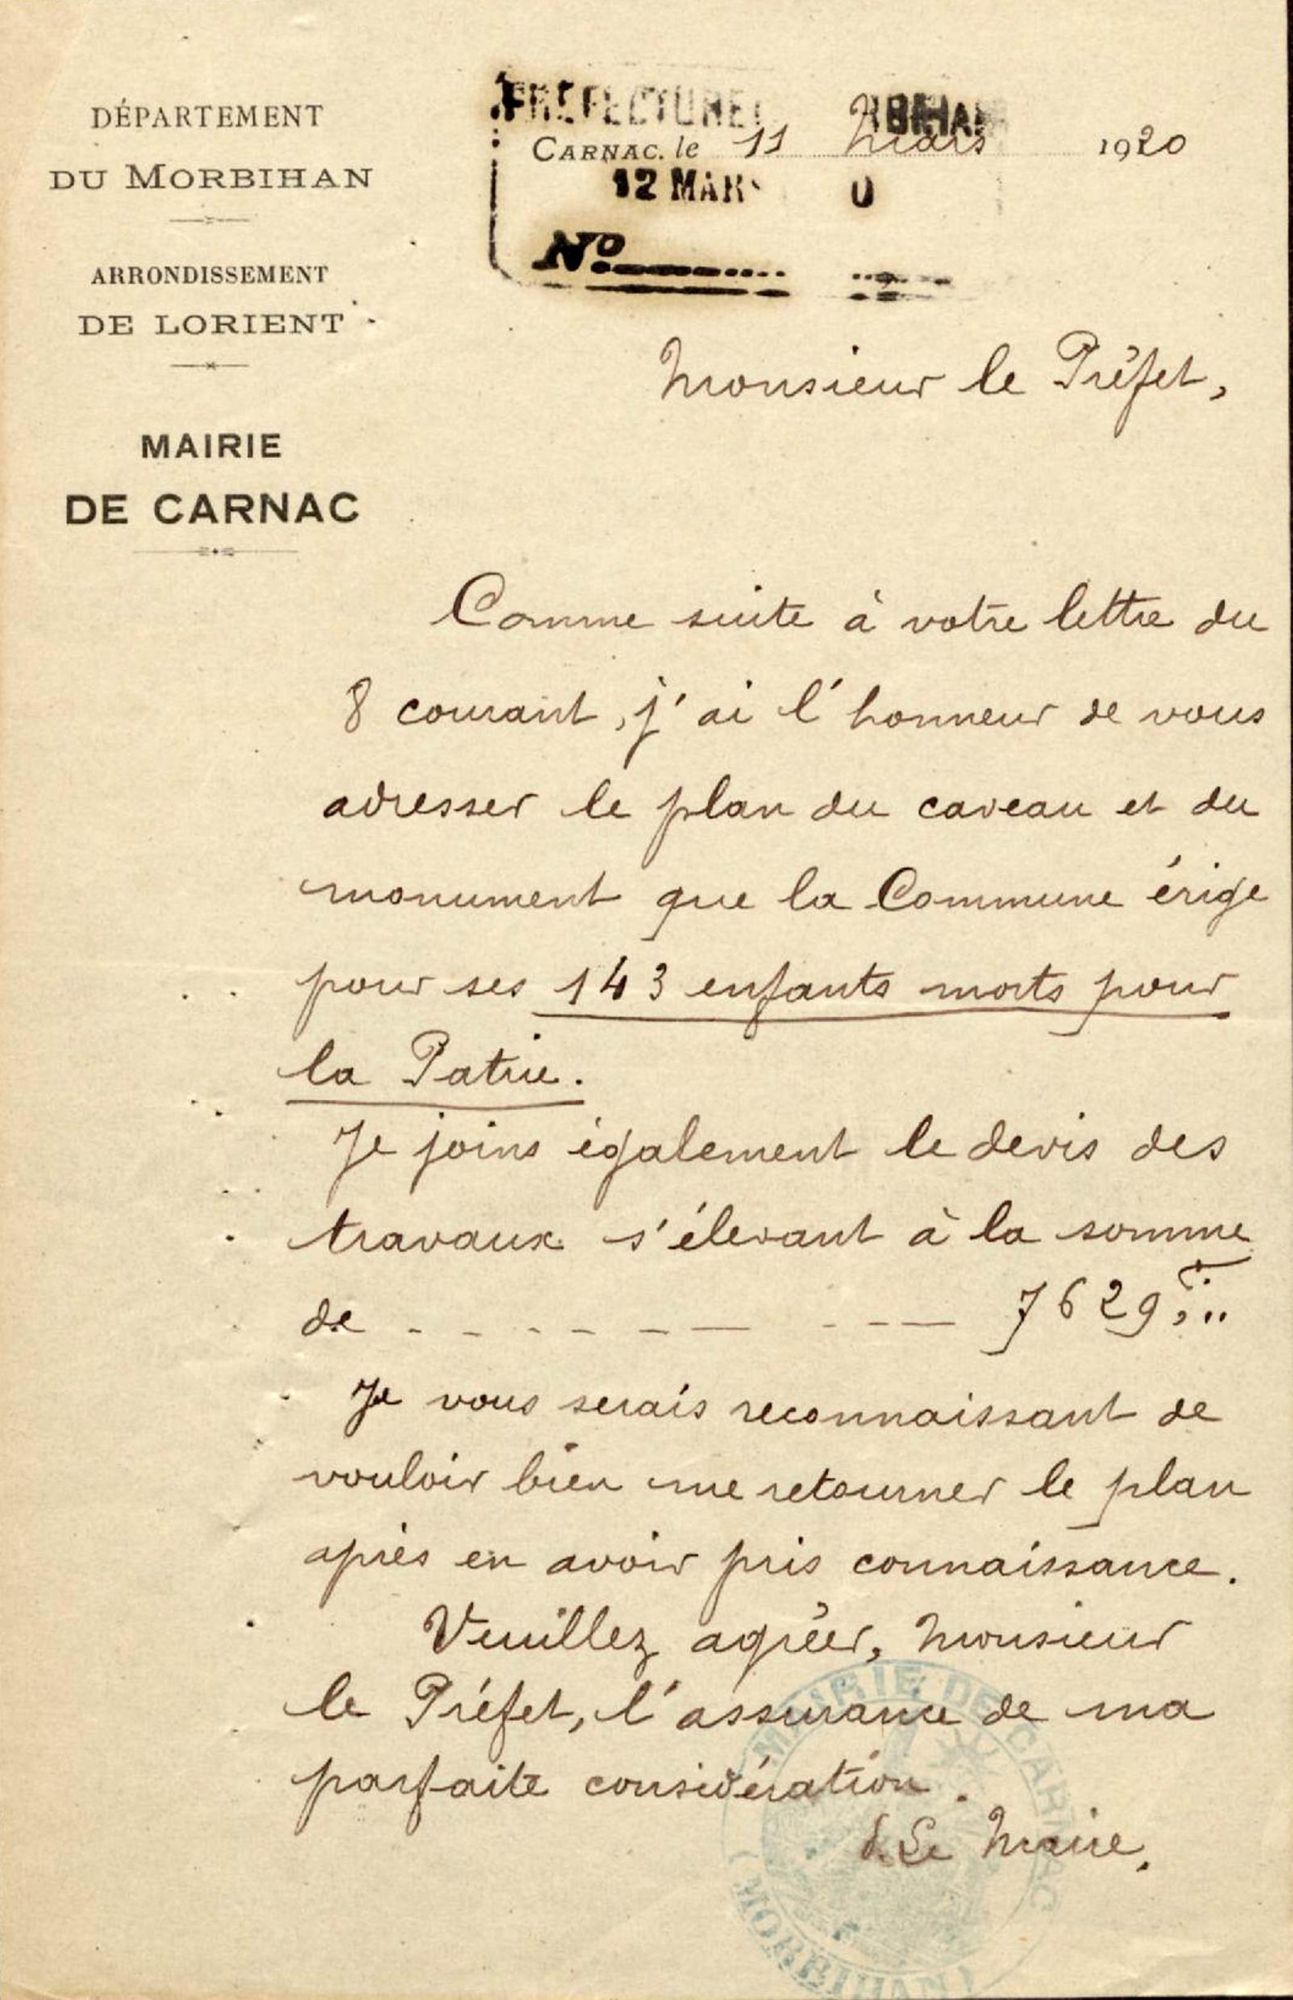 DÉPARTEMENT
DU MORBIHAN
ARRONDISSEMENT
DE LORIENT
MAIRIE
DE CARNAC
PRÉFECTURE
CARNAC, le 11 Mars 1920
12 MARS 0
No.
Monsieur le Préfet,
Comme suite à votre lettre du
8 courant, j'ai l'honneur de vous
adresser le plan du caveau et du
monument que la Commune érige
pour ses 143 enfants morts pour
la Patrie.
Je joins également le devis des
travaux s'élevant à la somme
de - - - - - - - - - - 7629,"
Je vous serais reconnaissant de
vouloir bien me retourner le plan
après en avoir pris connaissance.
Veuillez agréer, Monsieur
le Préfet, l'assurance de ma
parfaite considération.
Le Maire,
MAIRIE DE CARNAC
(MORBIHAN)